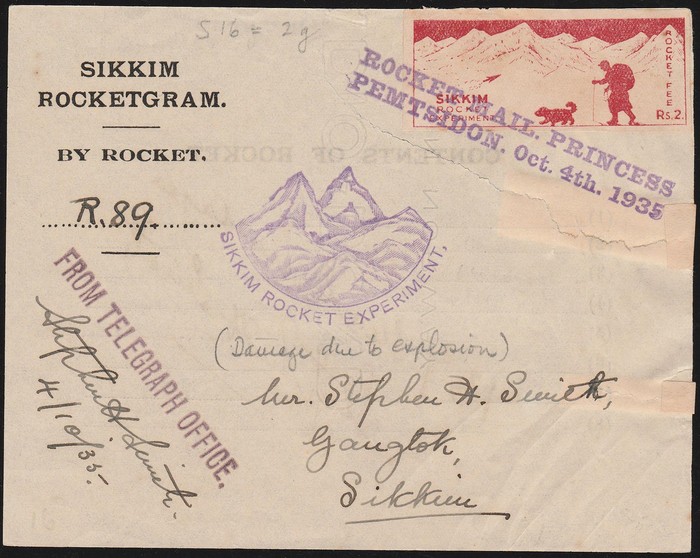 S 16 = 2g
SIKKIM
ROCKETGRAM.
BY ROCKET.
R.89.
FROM TELEGRAPH OFFICE.
Stephen H Smith.
4/10/35.
SIKKIM
ROCKET
EXPERIMENT
ROCKET FEE
Rs.2.
ROCKET MAIL. PRINCESS
PEMTSIDON. Oct. 4th. 1935
SIKKIM ROCKET EXPERIMENT,
(Damage due to explosion)
Mr. Stephen H. Smith,
Gangtok,
Sikkim
16